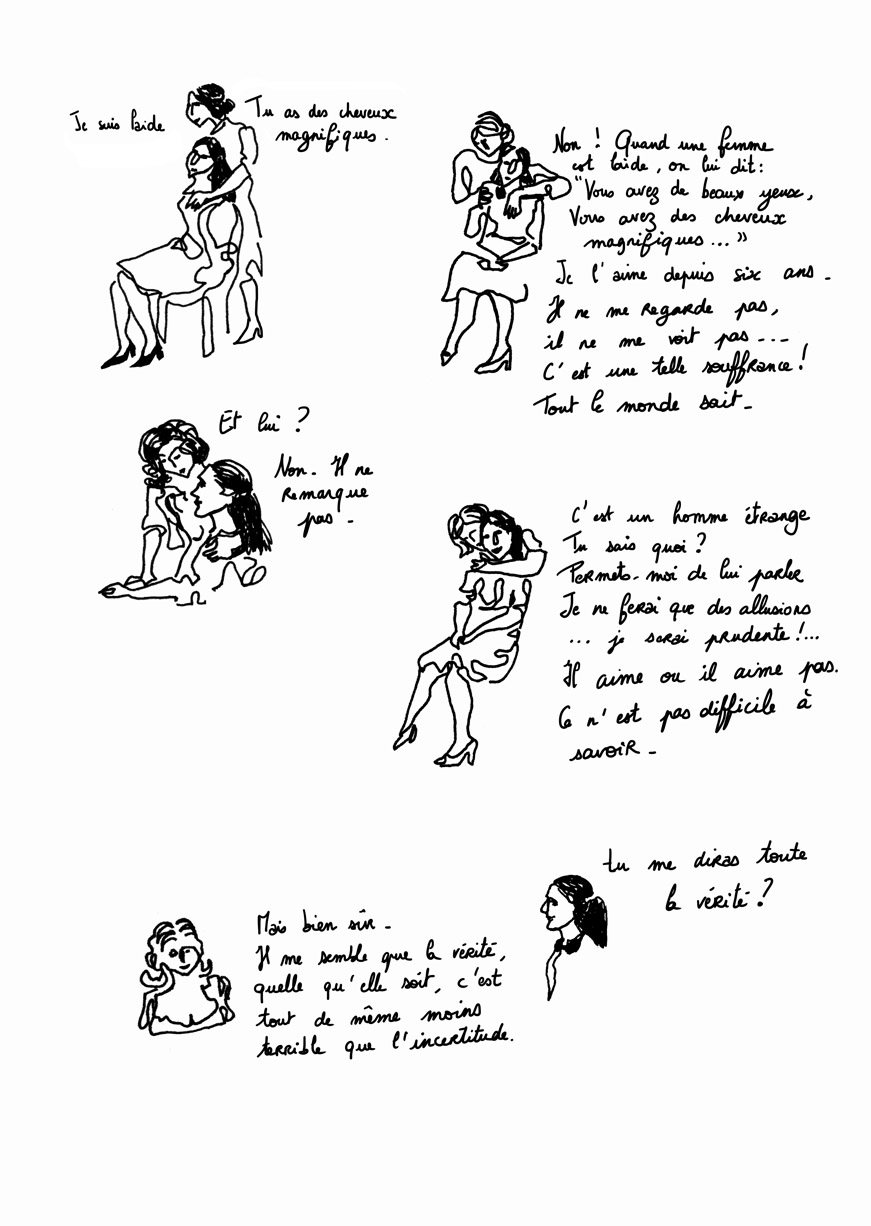 Je suis laide
Tu as des cheveux
magnifiques.
Non ! Quand une femme
est laide, on lui dit :
"Vous avez de beaux yeux,
Vous avez des cheveux
magnifiques... »
Je l'aime depuis six ans -
Il ne me regarde pas,
il ne me voit pas ---
C'est une telle souffrance !
Tout le monde sait -
Et lui ?
Non - Il ne
remarque
pas -
C'est un homme étrange
Tu sais quoi ?
Permets-moi de lui parler
Je ne ferai que des allusions
... je serai prudente !...
Il aime ou il aime pas.
Ce n'est pas difficile à
savoir -
tu me diras toute
la vérité ?
Mais bien sûr -
Il me semble que la vérité,
quelle qu'elle soit, c'est
tout de même moins
terrible que l'incertitude.